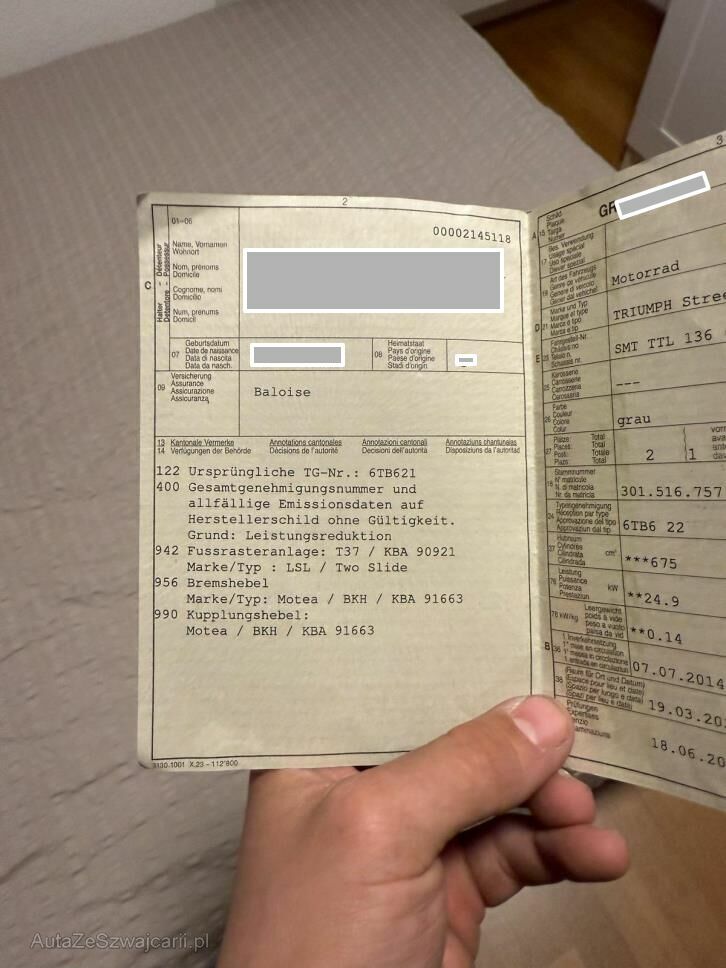 2
01–06
00002145118
C
Halter Détenteur
Detentore Possessur
Name, Vornamen
Wohnort
Nom, prénoms
Domicile
Cognome, nomi
Domicilio
Num, prenums
Domicil
07
Geburtsdatum
Date de naissance
Data di nascita
Data da nasch.
08
Heimatstaat
Pays d'origine
Paese d'origine
Stadi d'origin
09
Versicherung
Assurance
Assicurazione
Assicuranza
Baloise
13 Kantonale Vermerke Annotations cantonales Annotazioni cantonali Annotaziuns chantunalas
14 Verfügungen der Behörde Décisions de l'autorité Decisioni dell'autorità Disposiziuns da l'autoritad
122 Ursprüngliche TG-Nr.: 6TB621
400 Gesamtgenehmigungsnummer und
allfällige Emissionsdaten auf
Herstellerschild ohne Gültigkeit.
Grund: Leistungsreduktion
942 Fussrasteranlage: T37 / KBA 90921
Marke/Typ : LSL / Two Slide
956 Bremshebel
Marke/Typ: Motea / BKH / KBA 91663
990 Kupplungshebel:
Motea / BKH / KBA 91663
3130.1001 X.23 – 112'800
3
A 15
Schild
Plaque
Targa
Numer
GR
17
Bes. Verwendung
Usage spécial
Uso speciale
Diever spezial
19
Art des Fahrzeugs
Genre de véhicule
Genere di veicolo
Gener dal vehichel
Motorrad
D 21
Marke und Typ
Marque et type
Marca e tipo
Marca e tip
TRIUMPH Stree
E 23
Fahrgestell-Nr.
Châssis no
Telaio n.
Schassis nr.
SMT TTL 136
25
Karosserie
Carrosserie
Carrozzeria
Carossaria
---
26
Farbe
Couleur
Colore
Colur
grau
27
Plätze: Total
Places: Total
Posti: Totale
Plazs: Total
2
1
18
Stammnummer
N° matricule
N. di matricola
Nr. da matricla
301.516.757
24
Typengenehmigung
Réception par type
Approvazione del tipo
Approvaziun dal tip
6TB6 22
37
Hubraum
Cylindrée
Cilindrata
Cilindrada
cm³
***675
76
Leistung
Puissance
Potenza
Prestaziun
kW
**24.9
78 kW/kg
Leergewicht
poids à vide
peso a vuoto
paisa da vid
**0.14
B 36
1. Inverkehrsetzung
1re mise en circulation
1a messa in circolazione
1. entrada en circulaziun
07.07.2014
38
(Raum für Ort und Datum)
(Espace pour lieu et date)
(Spazio per luogo e data)
(Spazi per lieu e data)
19.03.20
Prüfungen
Expertises
18.06.20
AutaZeSzwajcarii.pl